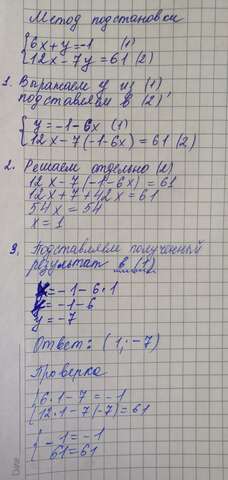 Метод подстановки
{6x + y = -1 (1)
{12x - 7y = 61 (2)
1. Выражаем y из (1)
подставляем в (2)
{y = -1 - 6x (1)
{12x - 7(-1 - 6x) = 61 (2)
2. Решаем отдельно (2)
12x - 7(-1 - 6x) = 61
12x + 7 + 42x = 61
54x = 54
x = 1
3. Подставляем полученный
результат в (1)
y = -1 - 6·1
y = -1 - 6
y = -7
Ответ: (1; -7)
Проверка
{6·1 - 7 = -1
{12·1 - 7(-7) = 61
{-1 = -1
{61 = 61